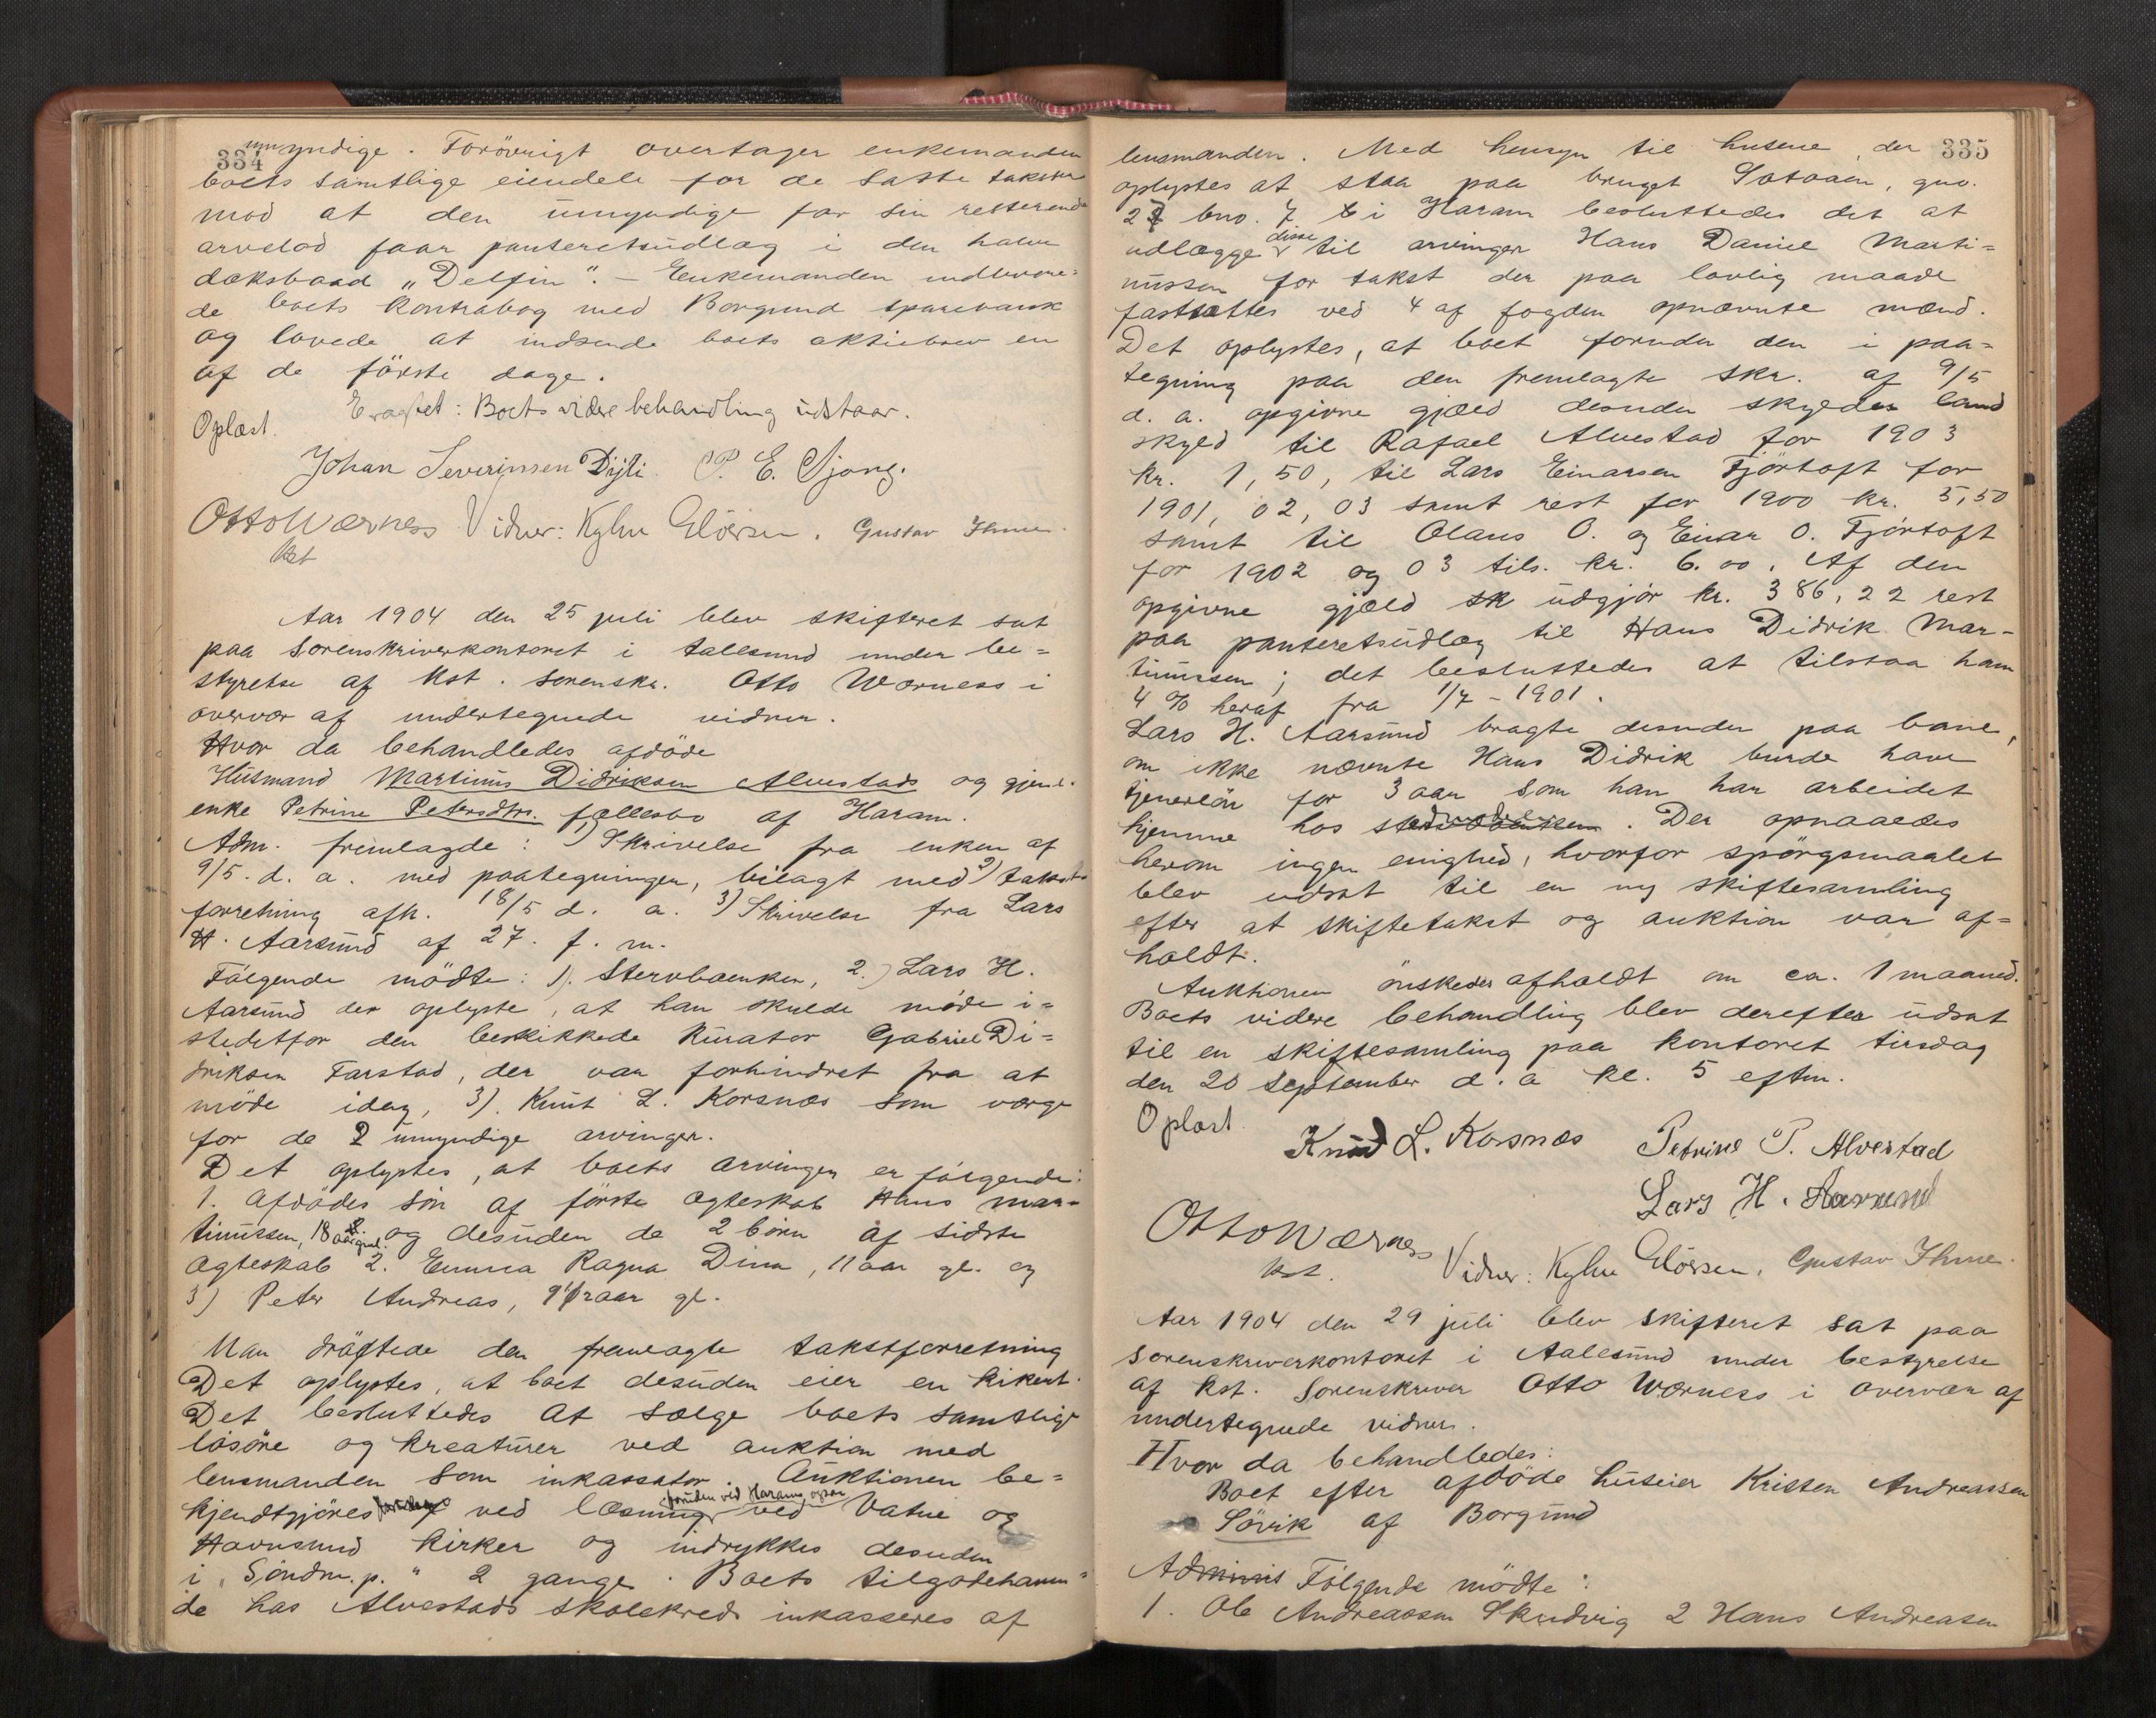 334
umyndige. Forøvrigt overtager enkemanden
boets samtlige eiendele for de satte takster
mod at den umyndige for sin resterende
arvelod faar panteretsudlæg i den halve
dæksbaad „Delfin“. – Enkemanden indlevere=
de boets kontrabog med Borgund sparebank
og lovede at indsende boets aktiebrev en
af de første dage.
Eragtet: Boets videre behandling udstaar.
Oplæst.
Johan Severinsen Dijli P. E. Sjong.
Otto Wærness Vidner: Kyhn Gløersen. Gustav Ihme.
kst
Aar 1904 den 25 juli blev skifteret sat
paa Sorenskriverkontoret i Aalesund under be=
styrelse af kst. sorenskr. Otto Wærness i
overvær af undertegnede vidner.
Hvor da behandledes afdøde
Husmand Martinus Didriksen Alvestads og gjenl.
enke Petrine Petersdtrs. fællesbo af Haram.
Adm. fremlagde: 1) Skrivelse fra enken af
9/5. d. a. med paategninger, bilagt med 2) takst
forretning afh. 18/5 d. a. 3) Skrivelse fra Lars
H. Aarsund af 27. f. m.
Følgende mødte: 1). Stervboenken, 2.) Lars H.
Aarsund der oplyste, at han skulde møde i=
stedetfor den beskikkede kurator Gabriel Di=
driksen Farstad, der var forhindret fra at
møde idag, 3). Knut L. Korsnæs som værge
for de 2 umyndige arvinger.
Det oplystes, at boets arvinger er følgende:
1. Afdødes søn af første ægteskab Hans Mar=
tinussen, 18 aar gml. og desuden de 2 børn af sidste
Ægteskab 2. Emma Ragna Dina, 11 aar gl. og
3) Peter Andreas, 9 1/2 aar gl.
Man drøftede den fremlagte takstforretning
Det oplystes, at boet desuden eier en kikert.
Det besluttedes at sælge boets samtlige
løsøre og kreaturer ved auktion med
lensmanden som inkassator. Auktionen be=
kjendtgjøres ved læsning foruden ved Harams ogsaa ved Vatne og
Havnsund kirker og indrykkes desuden
i „Søndm. p.“ 2 gange. Boets tilgodehaven=
de hos Alvestads skolekreds inkasseres af
335
lensmanden. Med hensyn til husene, der
oplystes at staa paa bruget Sataaen, gno.
22 bno. 7 i Haram besluttedes det at
udlægge disse til arvingen Hans Daniel Marti=
nussen for takst der paa lovlig maade
fastsættes ved 4 af fogden opnævnte mænd.
Det oplystes, at boet foruden den i paa=
tegning paa den fremlagte skr. af 9/5
d. a. opgivne gjæld desuden skylder land
skyld til Rafael Alvestad for 1903
kr. 1,50, til Lars Einarsen Fjørtoft for
1901, 02, 03 samt rest for 1900 kr. 5,50
samt til Olaus O. og Einar O. Fjørtoft
for 1902 og 03 tils. kr. 6.00. Af den
opgivne gjæld sk udgjør kr. 386,22 rest
paa panteretsudlæg til Hans Didrik Mar-
tinussen; det besluttedes at tilstaa ham
4 % heraf fra 1/7 - 1901.
Lars H. Aarsund bragte desuden paa bane,
om ikke nævnte Hans Didrik burde have
tjenerløn for 3 aar som han har arbeidet
hjemme hos stedmoderen. Der opnaaedes
herom ingen enighed, hvorfor spørgsmaalet
blev udsat til en ny skiftesamling
efter at skiftetakst og auktion var af=
holdt.
Auktionen ønskedes afholdt om ca. 1 maaned.
Boets videre behandling blev derefter udsat
til en skiftesamling paa kontoret tirsdag
den 20 September d. a kl. 5 eftm.
Oplæst.
Knud L. Korsnæs Petrine P. Alvestad
Lars H. Aarsund
Otto Wærness
kst. Vidner: Kyhn Gløersen. Gustav Ihme.
Aar 1904 den 29 juli blev skifteret sat paa
Sorenskriverkontoret i Aalesund under bestyrelse
af kst. Sorenskriver Otto Wærness i overvær af
undertegnede vidner.
Hvor da behandledes:
Boet efter afdøde huseier Kristen Andreassen
Sørvik af Borgund
Adminis Følgende mødte:
1. Ole Andreassen Skudvig 2 Hans Andreasen